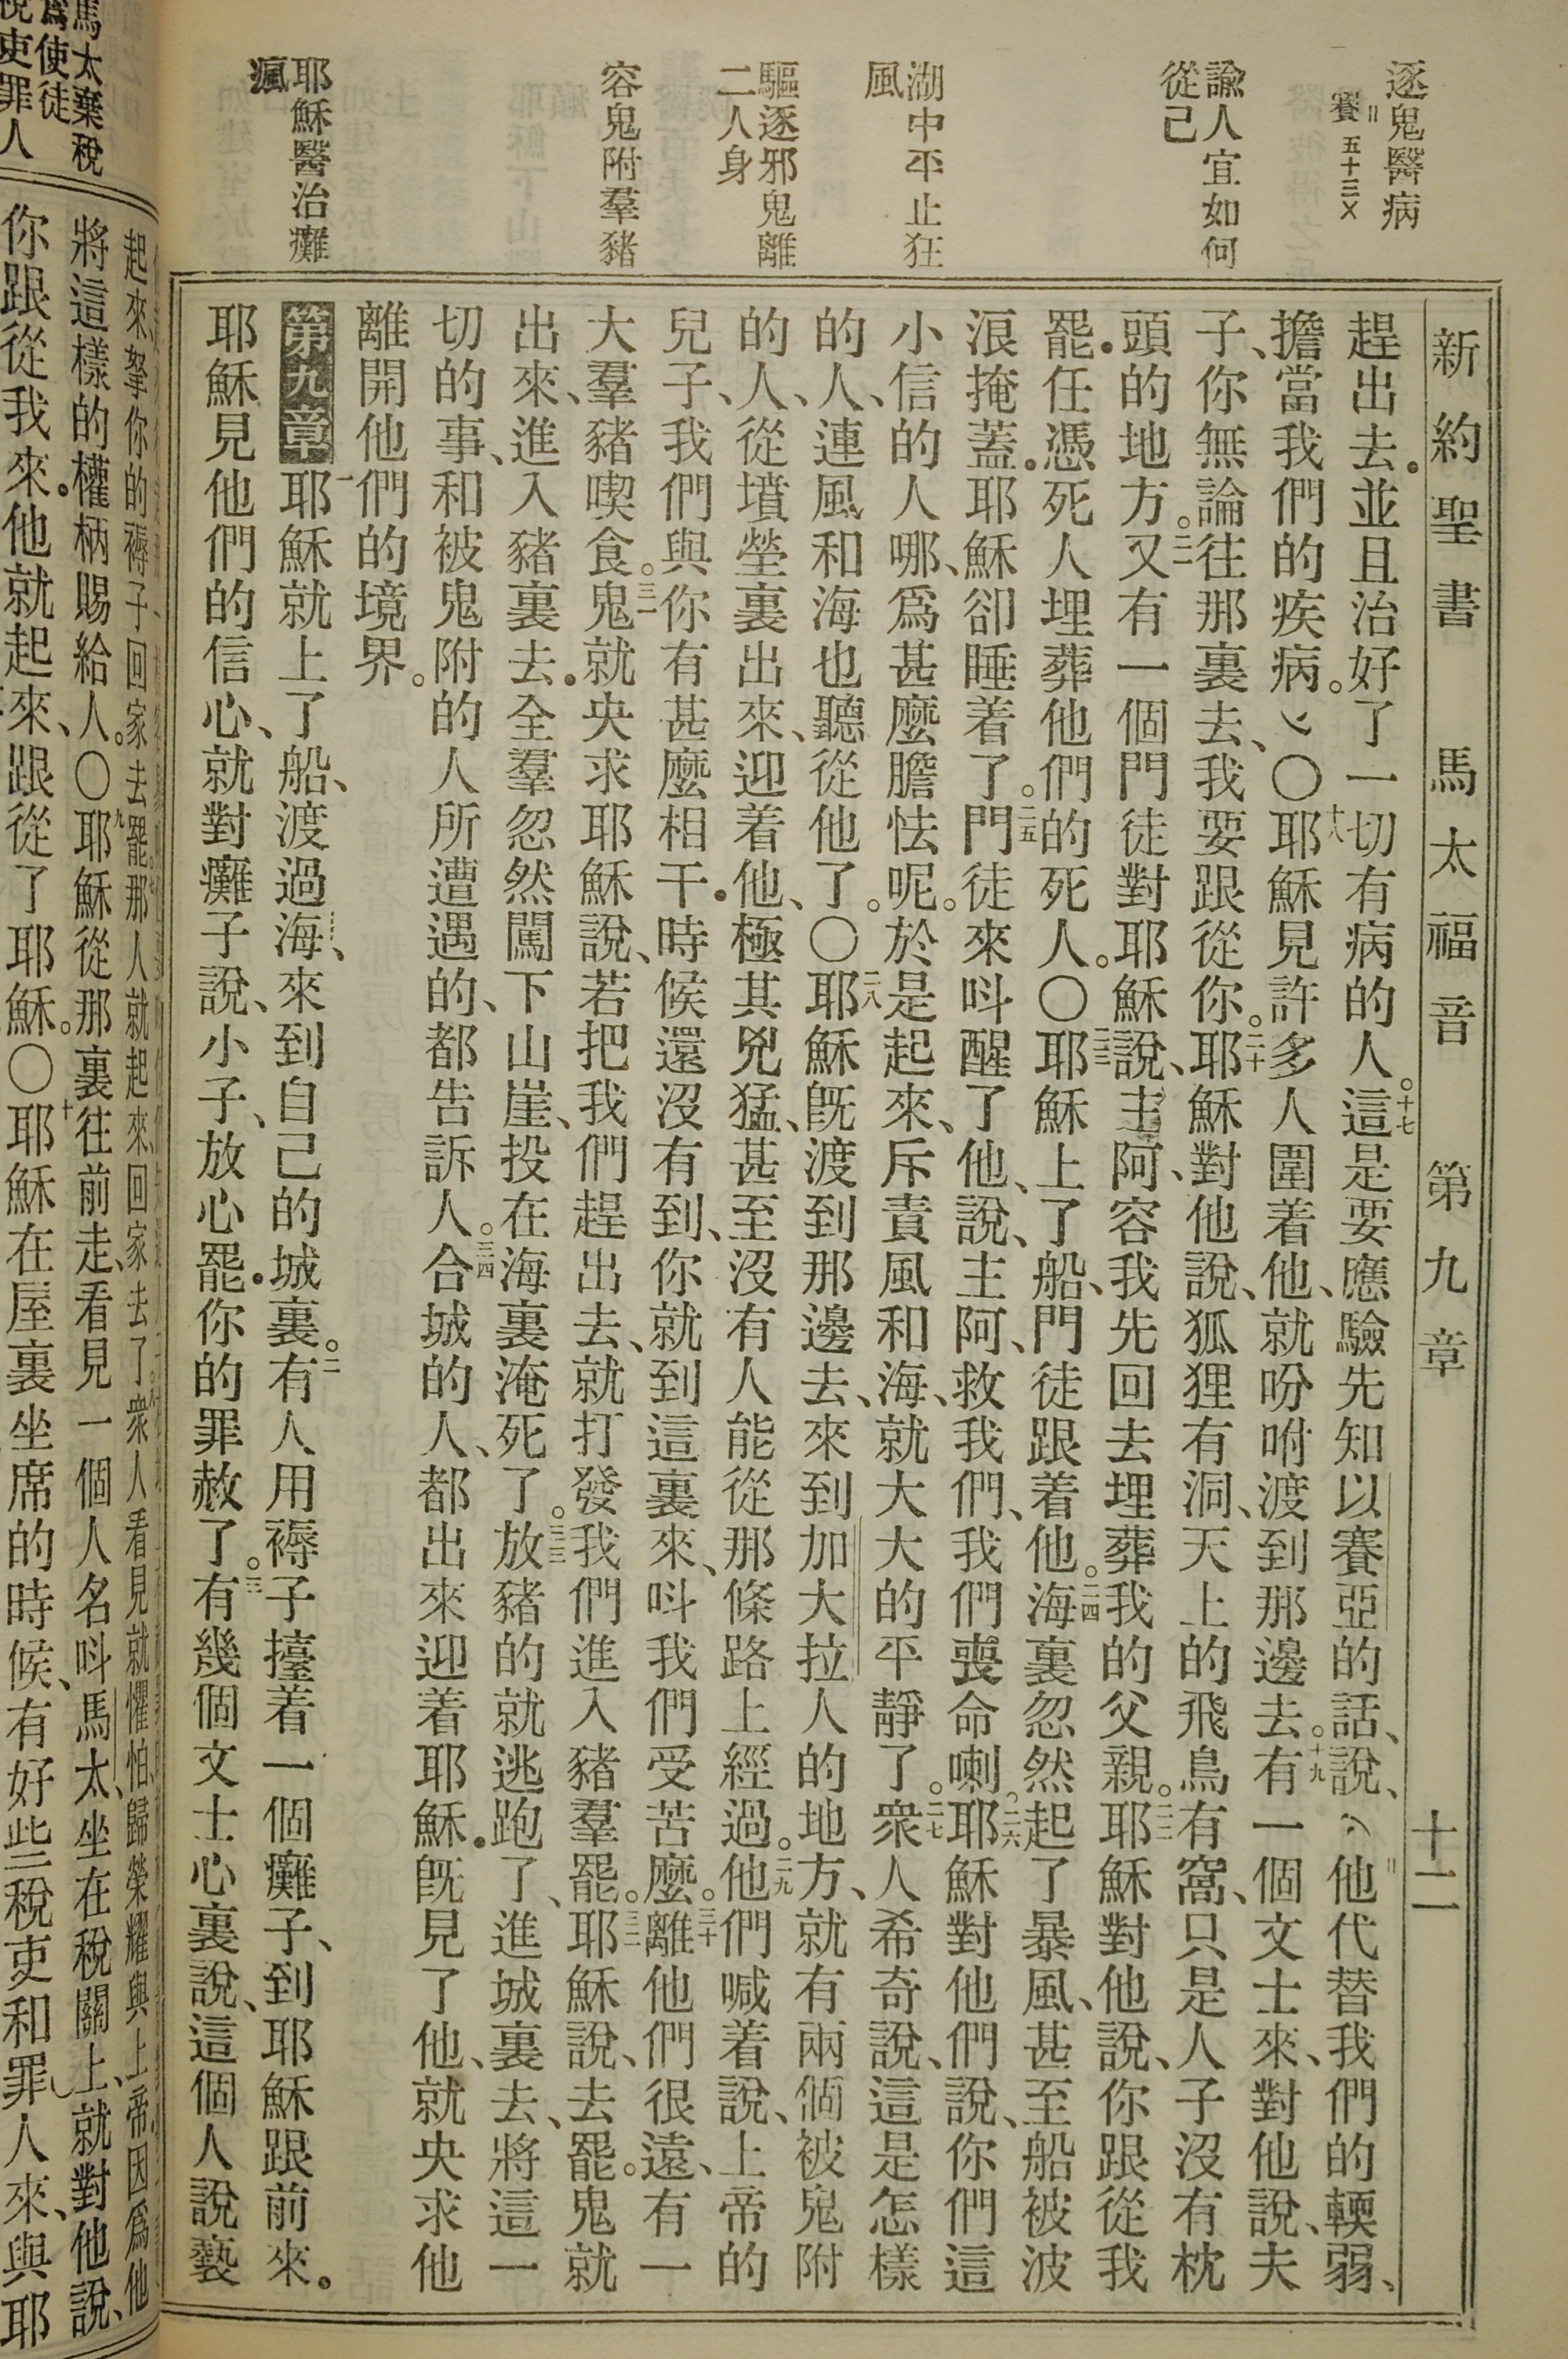 新約聖書 馬太福音 第九章 十二
逐鬼醫病
賽五十三〤
諭人宜如何
從己
湖中平止狂
風
驅逐邪鬼離
二人身
容鬼附羣豬
耶穌醫治癱
瘋
趕出去．並且治好了一切有病的人。十七這是要應驗先知以賽亞的話、說、他代替我們的輭弱、
擔當我們的疾病。〇十八耶穌見許多人圍着他、就吩咐渡到那邊去。十九有一個文士來、對他說、夫
子、你無論往那裏去、我要跟從你。二十耶穌對他說、狐狸有洞、天上的飛鳥有窩、只是人子沒有枕
頭的地方。二一又有一個門徒對耶穌說、主阿、容我先回去埋葬我的父親。二二耶穌對他說、你跟從我
罷．任憑死人埋葬他們的死人。〇二三耶穌上了船、門徒跟着他。二四海裏忽然起了暴風、甚至船被波
浪掩蓋．耶穌卻睡着了。二五門徒來呌醒了他、說、主阿、救我們、我們喪命喇。二六耶穌對他們說、你們這
小信的人哪、爲甚麼膽怯呢。於是起來、斥責風和海、就大大的平靜了。二七衆人希奇說、這是怎樣
的人、連風和海也聽從他了。〇二八耶穌旣渡到那邊去、來到加大拉人的地方、就有兩個被鬼附
的人、從墳塋裏出來、迎着他、極其兇猛、甚至沒有人能從那條路上經過。二九他們喊着說、上帝的
兒子、我們與你有甚麼相干．時候還沒有到、你就到這裏來、呌我們受苦麼。三十離他們很遠、有一
大羣豬喫食。三一鬼就央求耶穌說、若把我們趕出去、就打發我們進入豬羣罷。三二耶穌說、去罷。鬼就
出來、進入豬裏去．全羣忽然闖下山崖、投在海裏淹死了。三三放豬的就逃跑了、進城裏去、將這一
切的事、和被鬼附的人所遭遇的、都告訴人。三四合城的人、都出來迎着耶穌．旣見了他、就央求他
離開他們的境界。
第九章 一耶穌就上了船、渡過海、來到自己的城裏。二有人用褥子擡着一個癱子、到耶穌跟前來．
耶穌見他們的信心、就對癱子說、小子、放心罷．你的罪赦了。三有幾個文士心裏說、這個人說褻
馬太棄稅
爲使徒
稅吏罪人
起來拏你的褥子、回家去罷。那人就起來回家去了。衆人看見就懼怕、歸榮耀與上帝、因爲他
將這樣的權柄賜給人。〇九耶穌從那裏往前走、看見一個人名呌馬太、坐在稅關上、就對他說、
你跟從我來．他就起來、跟從了耶穌。〇十耶穌在屋裏坐席的時候、有好些稅吏和罪人來、與耶